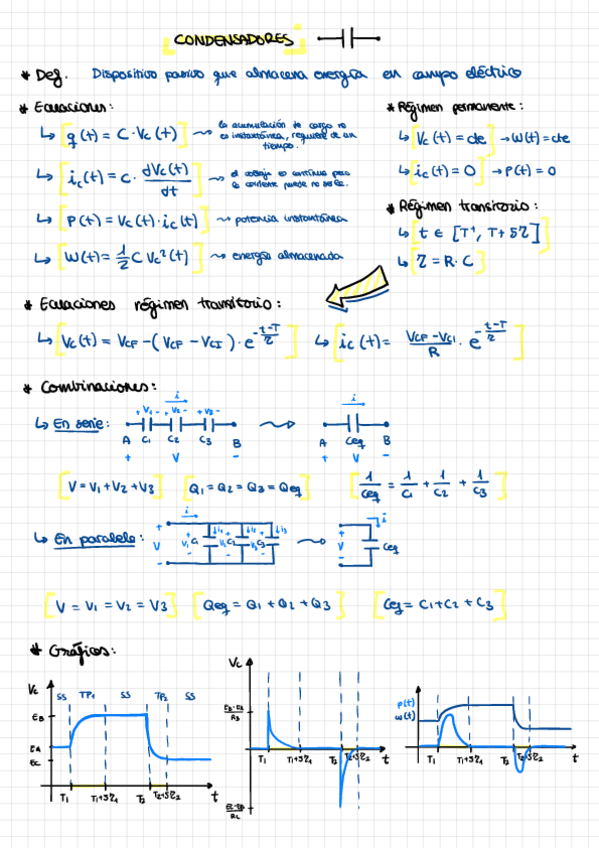 CONDENSADORES
* Def. Dispositivo pasivo que almacena energía en campo eléctrico
* Ecuaciones:
↳ [q(t) = C · Vc(t)] → la acumulación de carga no es instantánea, requiere de un tiempo.
↳ [ic(t) = C · dVc(t)/dt] → el voltaje es continuo pero la corriente puede no serlo.
↳ [P(t) = Vc(t) · ic(t)] → potencia instantánea
↳ [W(t) = 1/2 C Vc²(t)] → energía almacenada
* Régimen permanente:
↳ [Vc(t) = cte] → W(t) = cte
↳ [ic(t) = 0] → P(t) = 0
* Régimen transitorio:
↳ [t ∈ [T⁺, T+5τ]]
↳ [τ = R · C]
* Ecuaciones régimen transitorio:
↳ [Vc(t) = VCF - (VCF - VCI) · e^(-(t-T)/τ)] ↳ [ic(t) = (VCF - VCI)/R · e^(-(t-T)/τ)]
* Combinaciones:
↳ En serie:
i
+ V1 - + V2 - + V3 -
A C1 C2 C3 B
+ V -
i
A Ceq B
+ V -
[V = V1 + V2 + V3] [Q1 = Q2 = Q3 = Qeq] [1/Ceq = 1/C1 + 1/C2 + 1/C3]
↳ En paralelo:
i
+ V -
i1 i2 i3
V1 C1 V2 C2 V3 C3
i
+ V -
Ceq
[V = V1 = V2 = V3] [Qeq = Q1 + Q2 + Q3] [Ceq = C1 + C2 + C3]
* Gráficos:
Vc
SS TP1 SS TP2 SS
EB
EA
EC
T1 T1+5τ1 T2 T2+5τ2 t
Vc
T1 T1+5τ1 T2 T2+5τ2 t
P(t)
W(t)
T1 T1+5τ1 T2 T2+5τ2 t